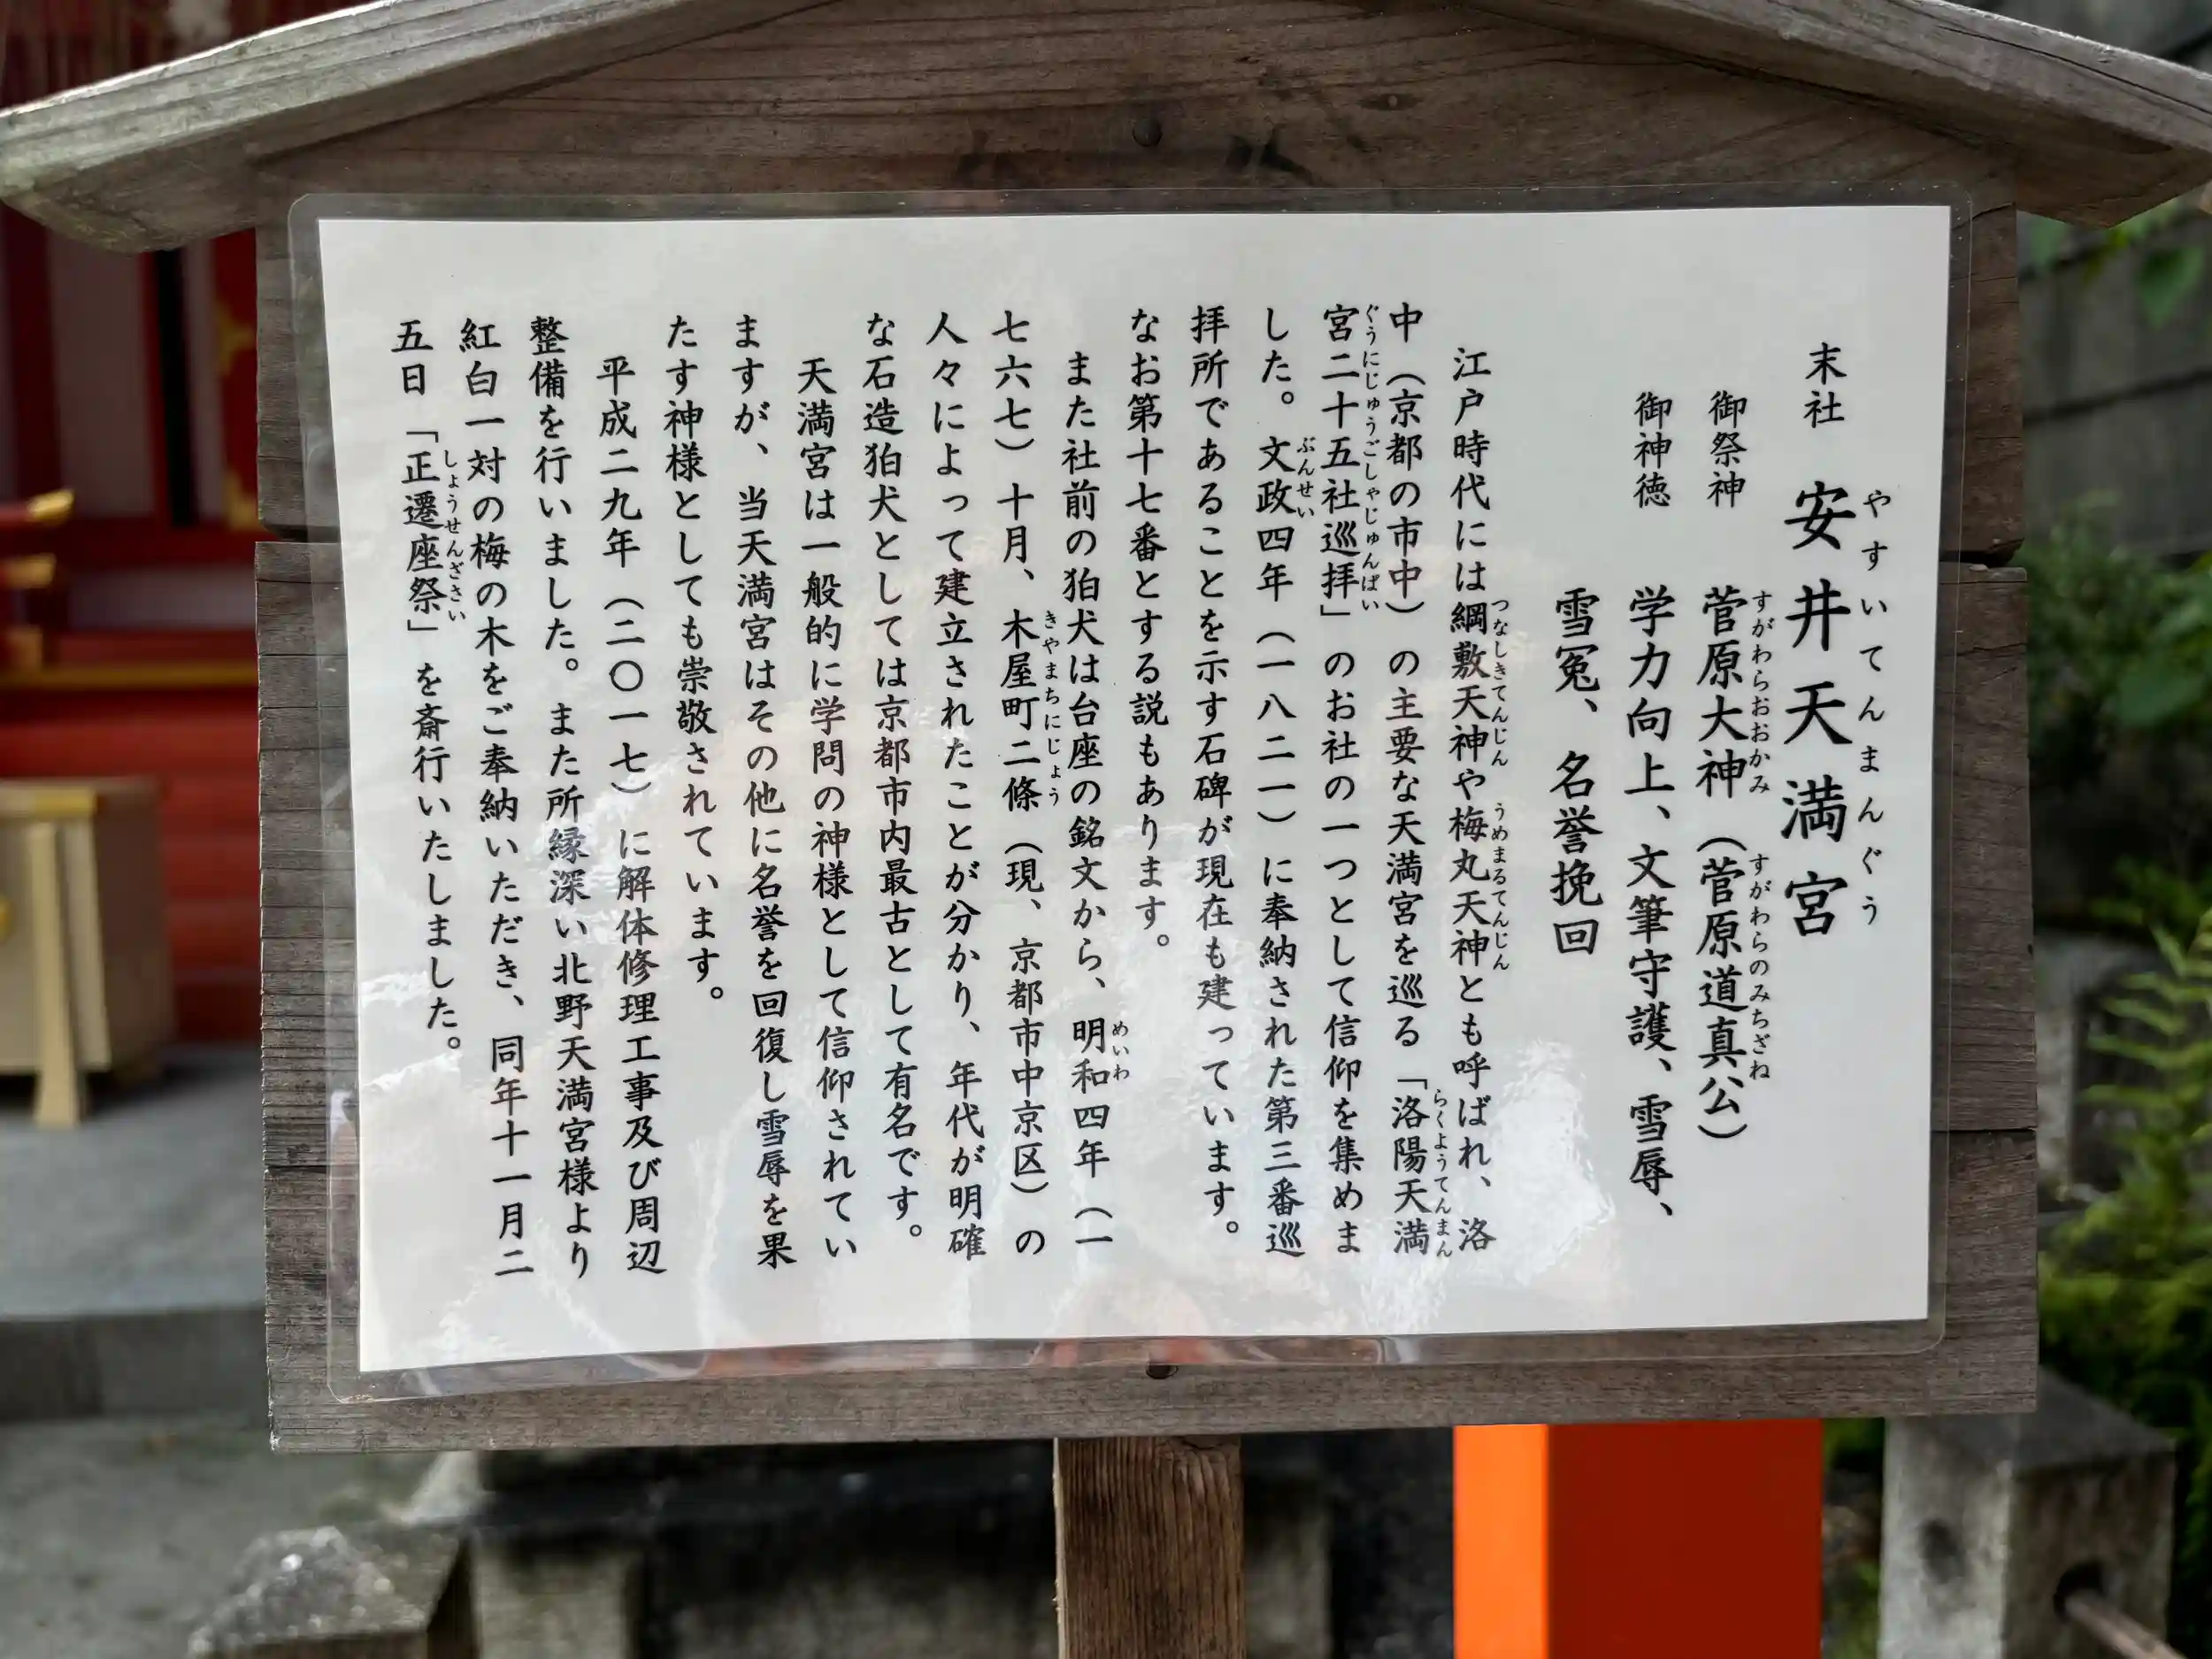 末社 安井天満宮
やすいてんまんぐう
御祭神 菅原大神（菅原道真公）
すがわらおおかみ すがわらのみちざね
御神徳 学力向上、文筆守護、雪辱、
雪冤、名誉挽回
江戸時代には綱敷天神や梅丸天神とも呼ばれ、洛
つなしきてんじん うめまるてんじん
中（京都の市中）の主要な天満宮を巡る「洛陽天満
らくようてんまん
宮二十五社巡拝」のお社の一つとして信仰を集めま
ぐうにじゅうごしゃじゅんぱい
した。文政四年（一八二一）に奉納された第三番巡
ぶんせい
拝所であることを示す石碑が現在も建っています。
なお第十七番とする説もあります。
また社前の狛犬は台座の銘文から、明和四年（一
めいわ
七六七）十月、木屋町二條（現、京都市中京区）の
きやまちにじょう
人々によって建立されたことが分かり、年代が明確
な石造狛犬としては京都市内最古として有名です。
天満宮は一般的に学問の神様として信仰されてい
ますが、当天満宮はその他に名誉を回復し雪辱を果
たす神様としても崇敬されています。
平成二九年（二〇一七）に解体修理工事及び周辺
整備を行いました。また所縁深い北野天満宮様より
紅白一対の梅の木をご奉納いただき、同年十一月二
五日「正遷座祭」を斎行いたしました。
しょうせんざさい